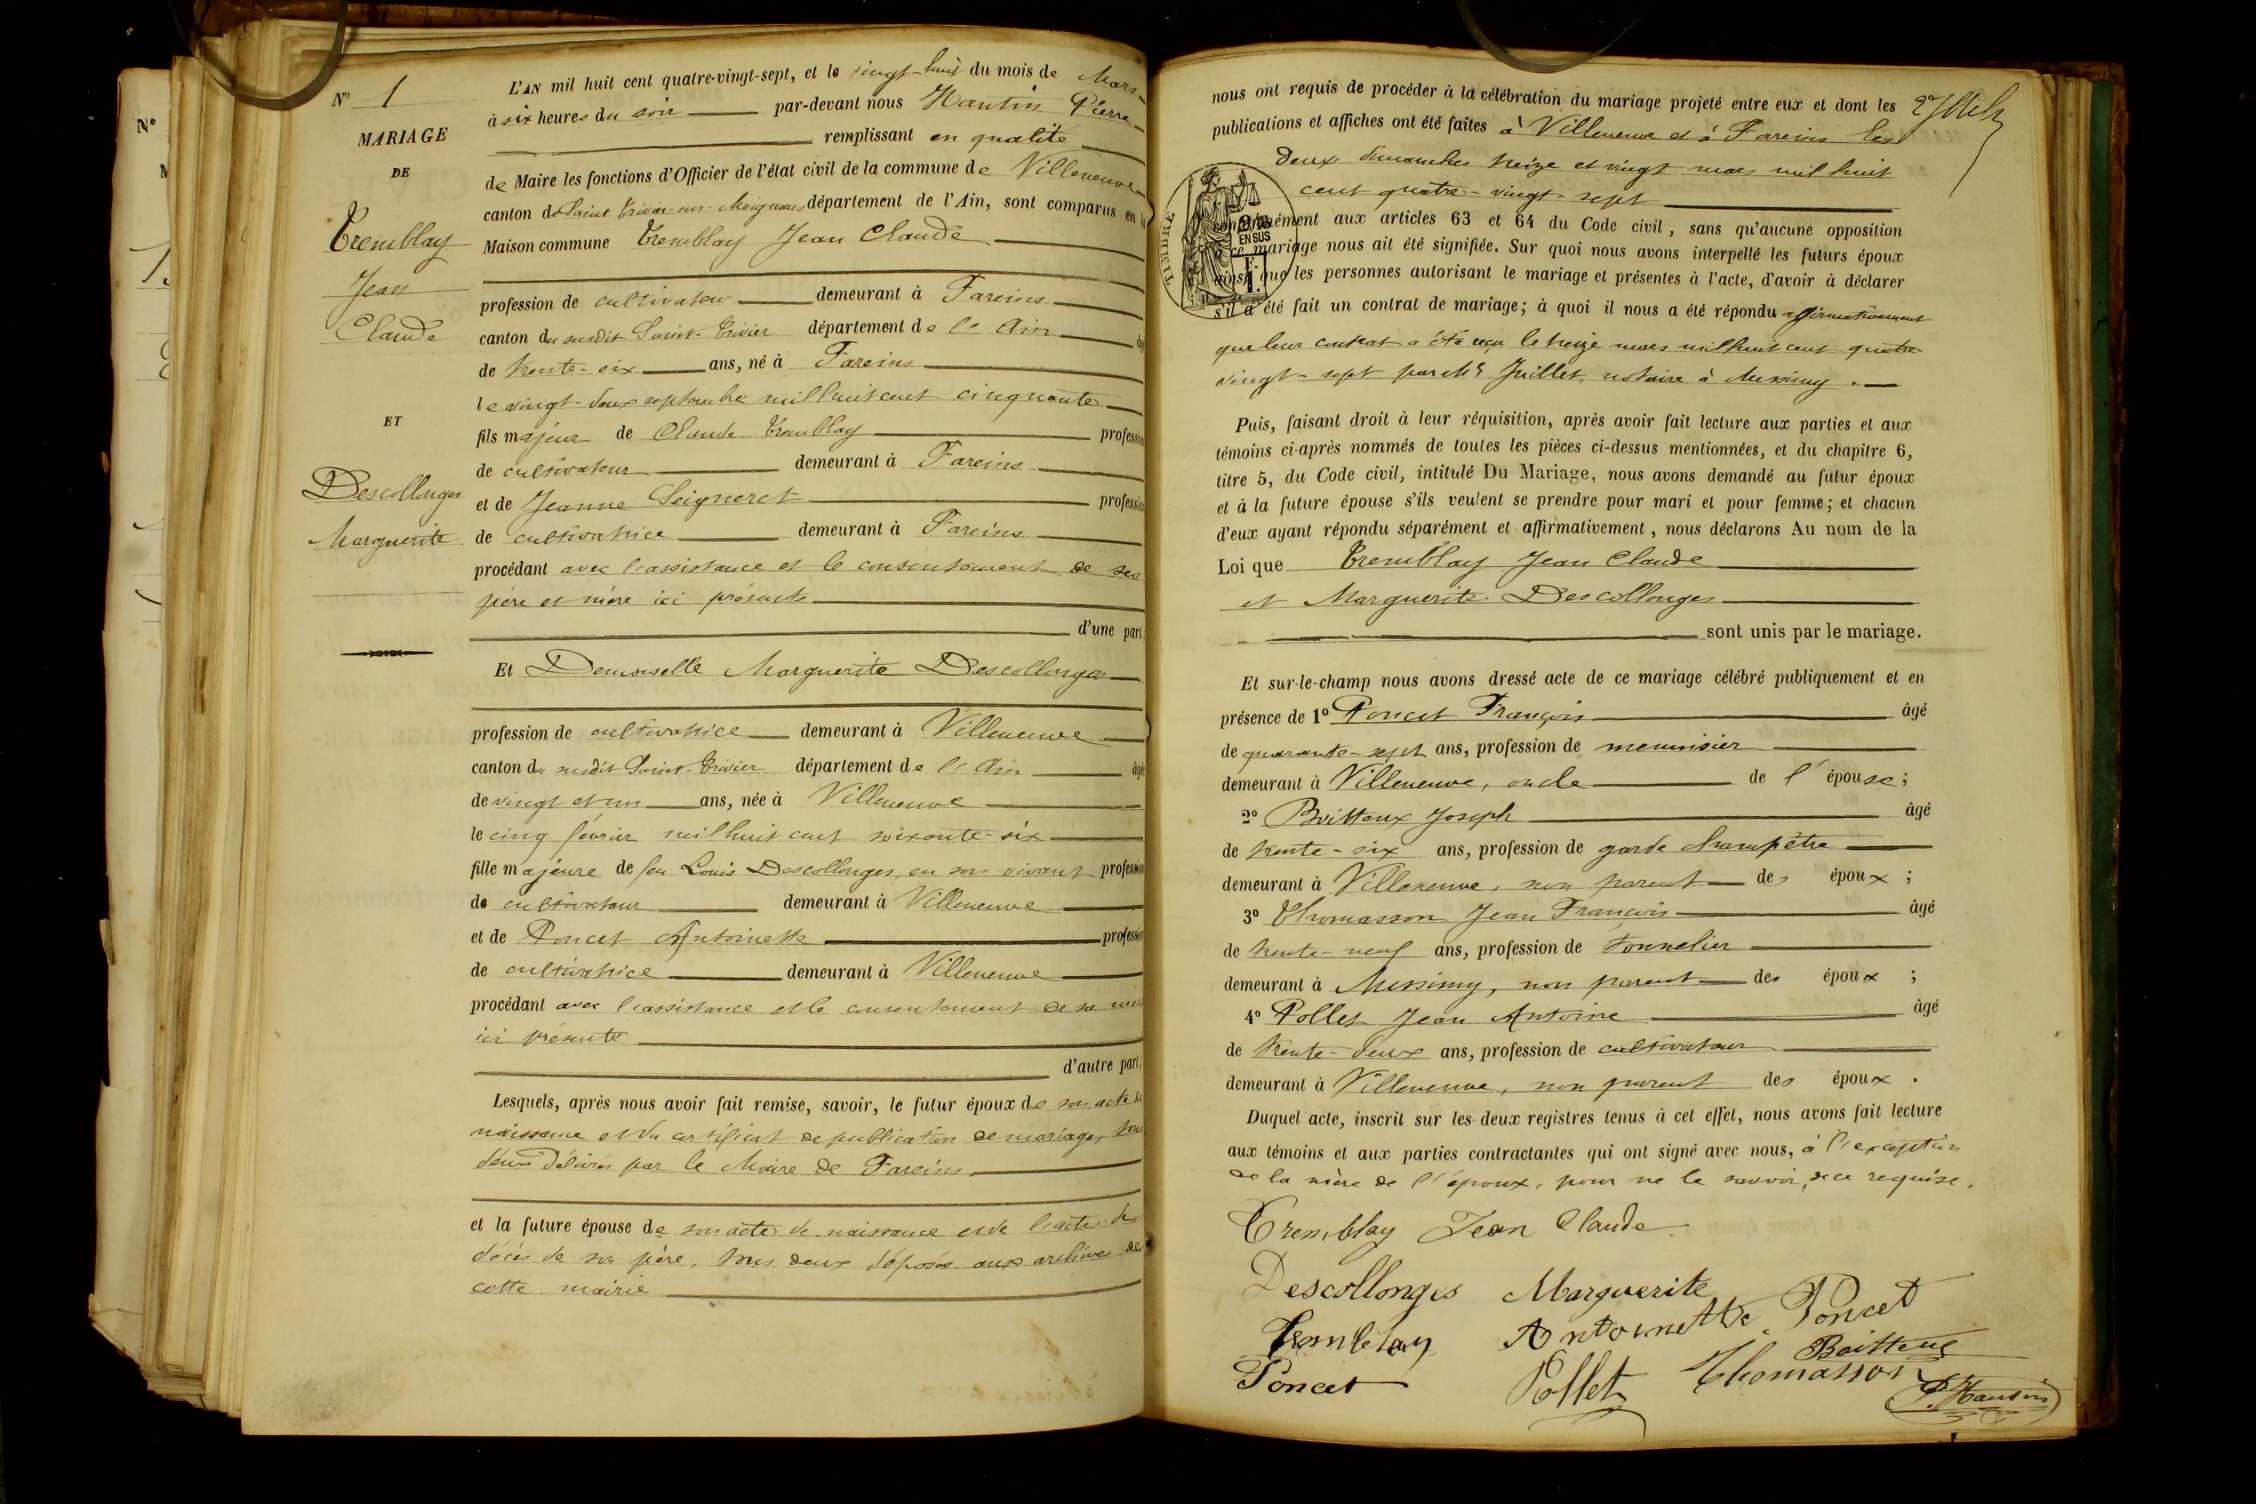 N° 1
MARIAGE
DE
Tremblay
Jean
Claude
ET
Descollonges
Marguerite
L'AN mil huit cent quatre-vingt-sept, et le vingt-huit du mois de Mars
à six heures du soir par-devant nous Hantin Pierre
remplissant en qualité
de Maire les fonctions d'Officier de l'état civil de la commune de Villeneuve
canton de Saint Trivier-sur-Moignans département de l'Ain, sont comparus en la
Maison commune Tremblay Jean Claude
profession de cultivateur demeurant à Fareins
canton du susdit Saint-Trivier département de l'Ain âgé
de trente-six ans, né à Fareins
le vingt-deux septembre mil huit cent cinquante
fils majeur de Claude Tremblay profession
de cultivateur demeurant à Fareins
et de Jeanne Seigneret profession
de cultivatrice demeurant à Fareins
procédant avec l'assistance et le consentement de ses
père et mère ici présents
d'une part
Et Demoiselle Marguerite Descollonges
profession de cultivatrice demeurant à Villeneuve
canton du susdit Saint-Trivier département de l'Ain âgé
de vingt et un ans, née à Villeneuve
le cinq février mil huit cent soixante-six
fille majeure de feu Louis Descollonges, en son vivant profession
de cultivateur demeurant à Villeneuve
et de Poncet Antoinette profession
de cultivatrice demeurant à Villeneuve
procédant avec l'assistance et le consentement de sa mère
ici présente
d'autre part,
Lesquels, après nous avoir fait remise, savoir, le futur époux de son acte de
naissance et du certificat de publication de mariage, tous
deux délivrés par le Maire de Fareins
et la future épouse de son acte de naissance et de l'acte de
décès de son père, tous deux déposés aux archives de
cette mairie
nous ont requis de procéder à la célébration du mariage projeté entre eux et dont les
publications et affiches ont été faites à Villeneuve et à Fareins les
deux dimanches treize et vingt mars mil huit
cent quatre-vingt-sept
TIMBRE
2/10
EN SUS
conformément aux articles 63 et 64 du Code civil, sans qu'aucune opposition
à ce mariage nous ait été signifiée. Sur quoi nous avons interpellé les futurs époux
ainsi que les personnes autorisant le mariage et présentes à l'acte, d'avoir à déclarer
s'il a été fait un contrat de mariage; à quoi il nous a été répondu affirmativement
que leur contrat a été reçu le treize mars mil huit cent quatre-
vingt-sept par Me Juillet, notaire à Messimy.
Puis, faisant droit à leur réquisition, après avoir fait lecture aux parties et aux
témoins ci-après nommés de toutes les pièces ci-dessus mentionnées, et du chapitre 6,
titre 5, du Code civil, intitulé Du Mariage, nous avons demandé au futur époux
et à la future épouse s'ils veulent se prendre pour mari et pour femme; et chacun
d'eux ayant répondu séparément et affirmativement, nous déclarons Au nom de la
Loi que Tremblay Jean Claude
et Marguerite Descollonges
sont unis par le mariage.
Et sur-le-champ nous avons dressé acte de ce mariage célébré publiquement et en
présence de 1° Poncet François âgé
de quarante-sept ans, profession de menuisier
demeurant à Villeneuve, oncle de l'épouse;
2° Boitteux Joseph âgé
de trente-six ans, profession de garde champêtre
demeurant à Villeneuve, non parent des époux;
3° Thomasson Jean François âgé
de trente-neuf ans, profession de tonnelier
demeurant à Messimy, non parent des époux;
4° Pollet Jean Antoine âgé
de trente-deux ans, profession de cultivateur
demeurant à Villeneuve, non parent des époux.
Duquel acte, inscrit sur les deux registres tenus à cet effet, nous avons fait lecture
aux témoins et aux parties contractantes qui ont signé avec nous, à l'exception
de la mère de l'époux, pour ne le savoir, de ce requise.
Tremblay Jean Claude
Descollonges Marguerite
Tremblay Antoinette Poncet
Boitteux
Poncet Pollet Thomasson
P. Hantin